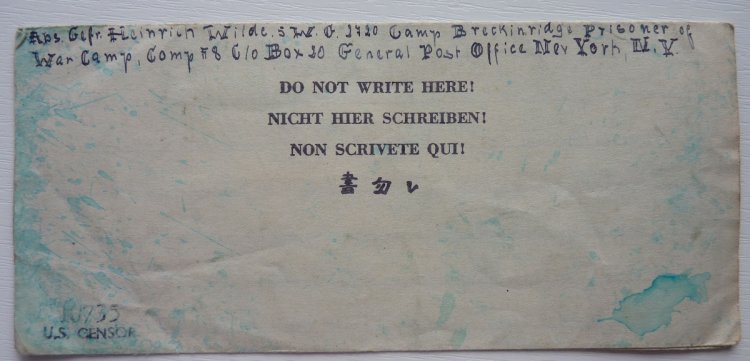 Abs. Gefr. Heinrich Wilde. 5 W. G. Camp Breckinridge Prisoner of
War Camp, Comp 8 C/o Box 20 General Post Office New York, N. Y.
DO NOT WRITE HERE!
NICHT HIER SCHREIBEN!
NON SCRIVETE QUI!
書勿レ
10735
U.S. CENSOR